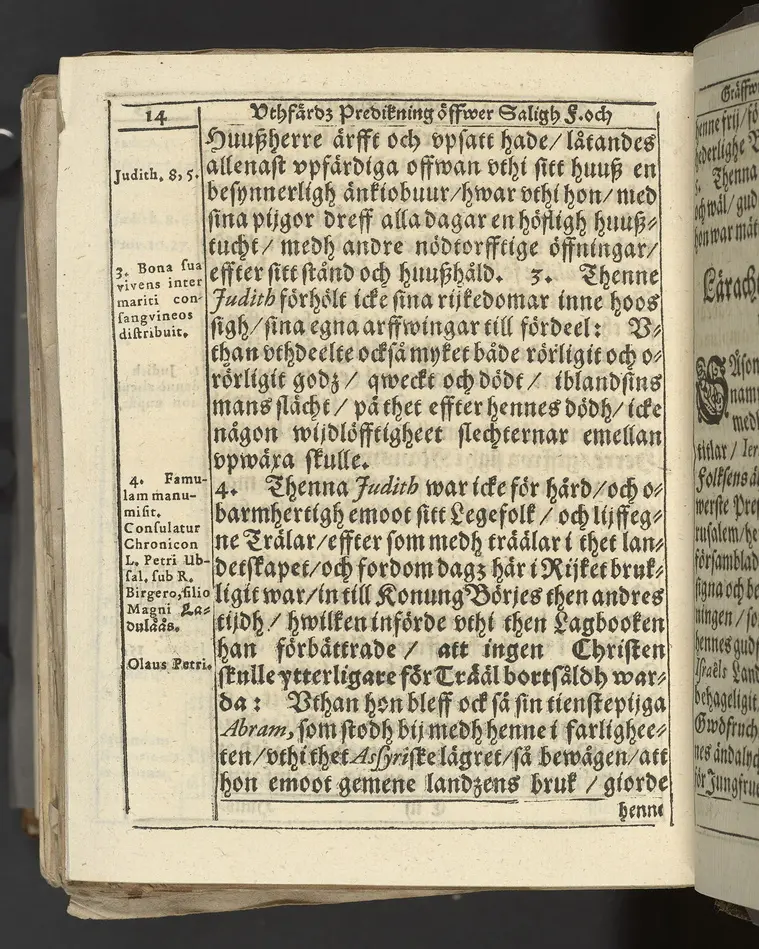 14
Vthfärdz Predikning öffwer Saligh F. och
Huußherre ärfft och vpsatt hade / låtandes
allenast vpfärdiga offwan vthi sitt huuß en
besynnerligh änkiobuur / hwar vthi hon / med
sina pijgor dreff alla dagar en höfligh huuß⸗
tucht / medh andre nödtorfftige öffningar /
effter sitt stånd och huußhåld. 3. Thenne
Judith förhölt icke sina rijkedomar inne hoos
sigh / sina egna arffwingar till fördeel: V⸗
than vthdeelte också myket både rörligit och o⸗
rörligit godz / qweckt och dödt / ibland sins
mans slächt / på thet effter hennes dödh / icke
någon wijdlöfftigheet slechternar emellan
vpwäxa skulle.
4. Thenna Judith war icke för hård / och o⸗
barmhertigh emoot sitt Legefolk / och lijffeg⸗
ne Trälar / effter som medh träälar i thet lan⸗
detskapet / och fordom dagz här i Rijket bruk⸗
ligit war / in till Konung Börjes then andres
tijdh / hwilken införde vthi then Lagbooken
han förbättrade / att ingen Christen
skulle ytterligare för Trääl bortsåldh war⸗
da: Vthan hon bleff ock så sin tienstepijga
Abram, som stodh bij medh henne i farlighee⸗
ten / vthi thet Assyriske lägret / så bewågen / att
hon emoot gemene landzens bruk / giorde
henne
Judith. 8, 5.
3. Bona sua
vivens inter
mariti con-
sangvineos
distribuit.
4. Famu-
lam manu-
misit.
Consulatur
Chronicon
L. Petri Ub-
sal. sub R.
Birgero, filio
Magni La⸗
dulåås.
Olaus Petri.